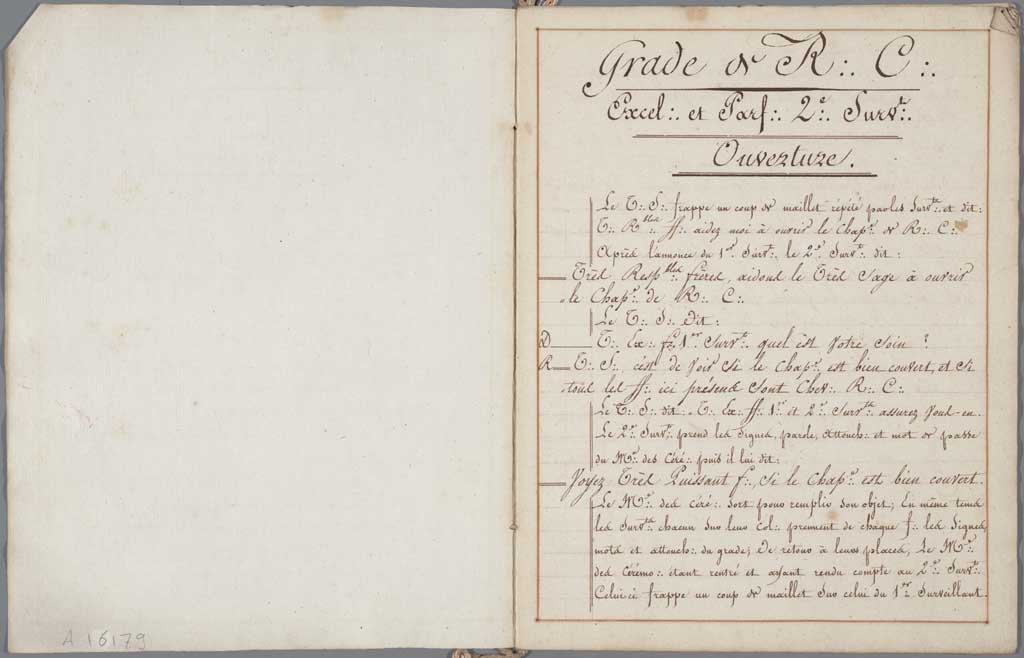 Grade de R∴ C∴
Excel∴ et Parf∴ 2e∴ Survt∴
Ouverture.
Le T∴ S∴ frappe un coup de maillet répété par les Survts∴ et dit∴
T∴ Rbles ff∴ aidez moi à ouvrir le Chap.e de R∴ C∴
Après l'annonce du 1er Survt∴ le 2e∴ Survt∴ dit∴
Très Respbles∴ frères, aidons le Très Sage à ouvrir
le Chap.e de R∴ C∴
Le T∴ S∴ dit∴
D T∴ Ex∴ f∴ 1er Survt∴ quel est votre soin ?
R T∴ S∴, c'est de voir si le Chap.e est bien couvert, et si
tous les ff∴ ici présens sont Chev∴ R∴ C∴
Le T∴ S∴ dit∴ T∴ Ex∴ ff∴ 1er et 2e∴ Survts assurez vous-en.
Le 2e∴ Survt∴ prend les signes, parole, attouch∴ et mot de passe
du Me∴ des Céré∴ puis il lui dit∴
Voyez Très Puissant f∴, si le Chap.e est bien couvert.
Le Me∴ des céré∴ sort pour remplir son objet; En même tems
les Survts chacun sur leur Col∴ prennent de chaque f∴ les signes,
mots et attouch∴ du grade; De retour à leurs places, Le Me∴
des cérémo∴ étant rentré et ayant rendu compte au 2e∴ Survt∴
Celui-ci frappe un coup de maillet sur celui du 1er Surveillant.
A 16179